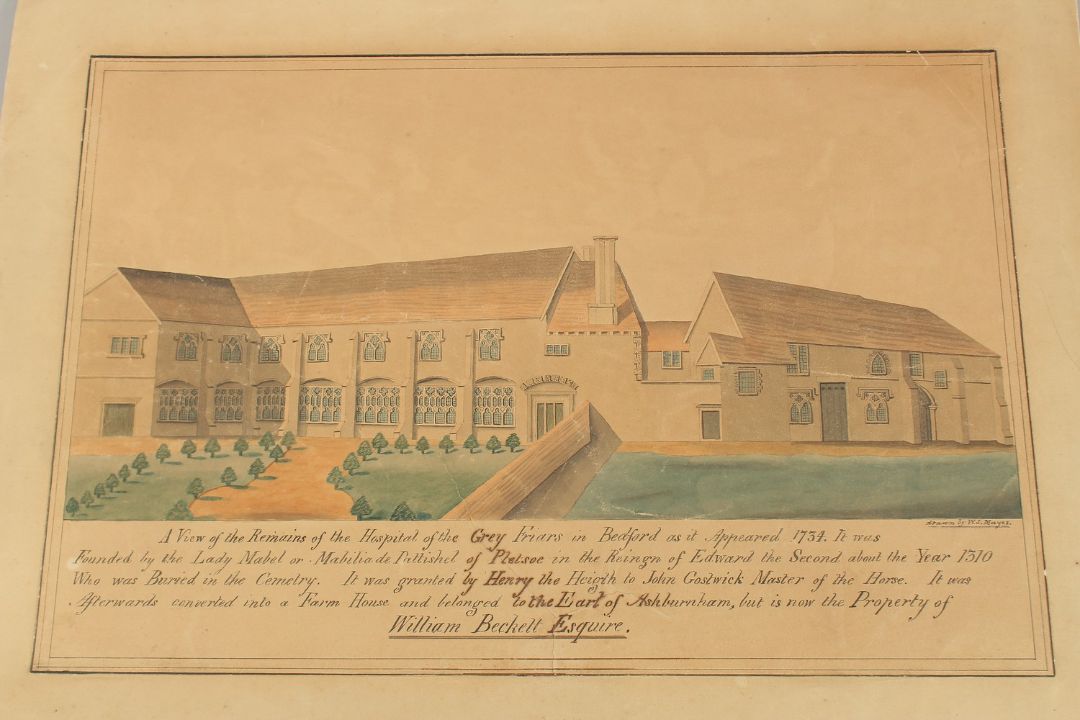 drawn by W.S. Mayes.
A View of the Remains of the Hospital of the Grey Friars in Bedford as it Appeared 1734. It was
Founded by the Lady Mabel or Mabilia de Pattishel of Pletsoe in the Reingn of Edward the Second about the Year 1310
Who was Buried in the Cemetry. It was granted by Henry the Heigth to John Gostwick Master of the Horse. It was
Afterwards converted into a Farm House and belonged to the Earl of Ashburnham, but is now the Property of
William Beckett Esquire.